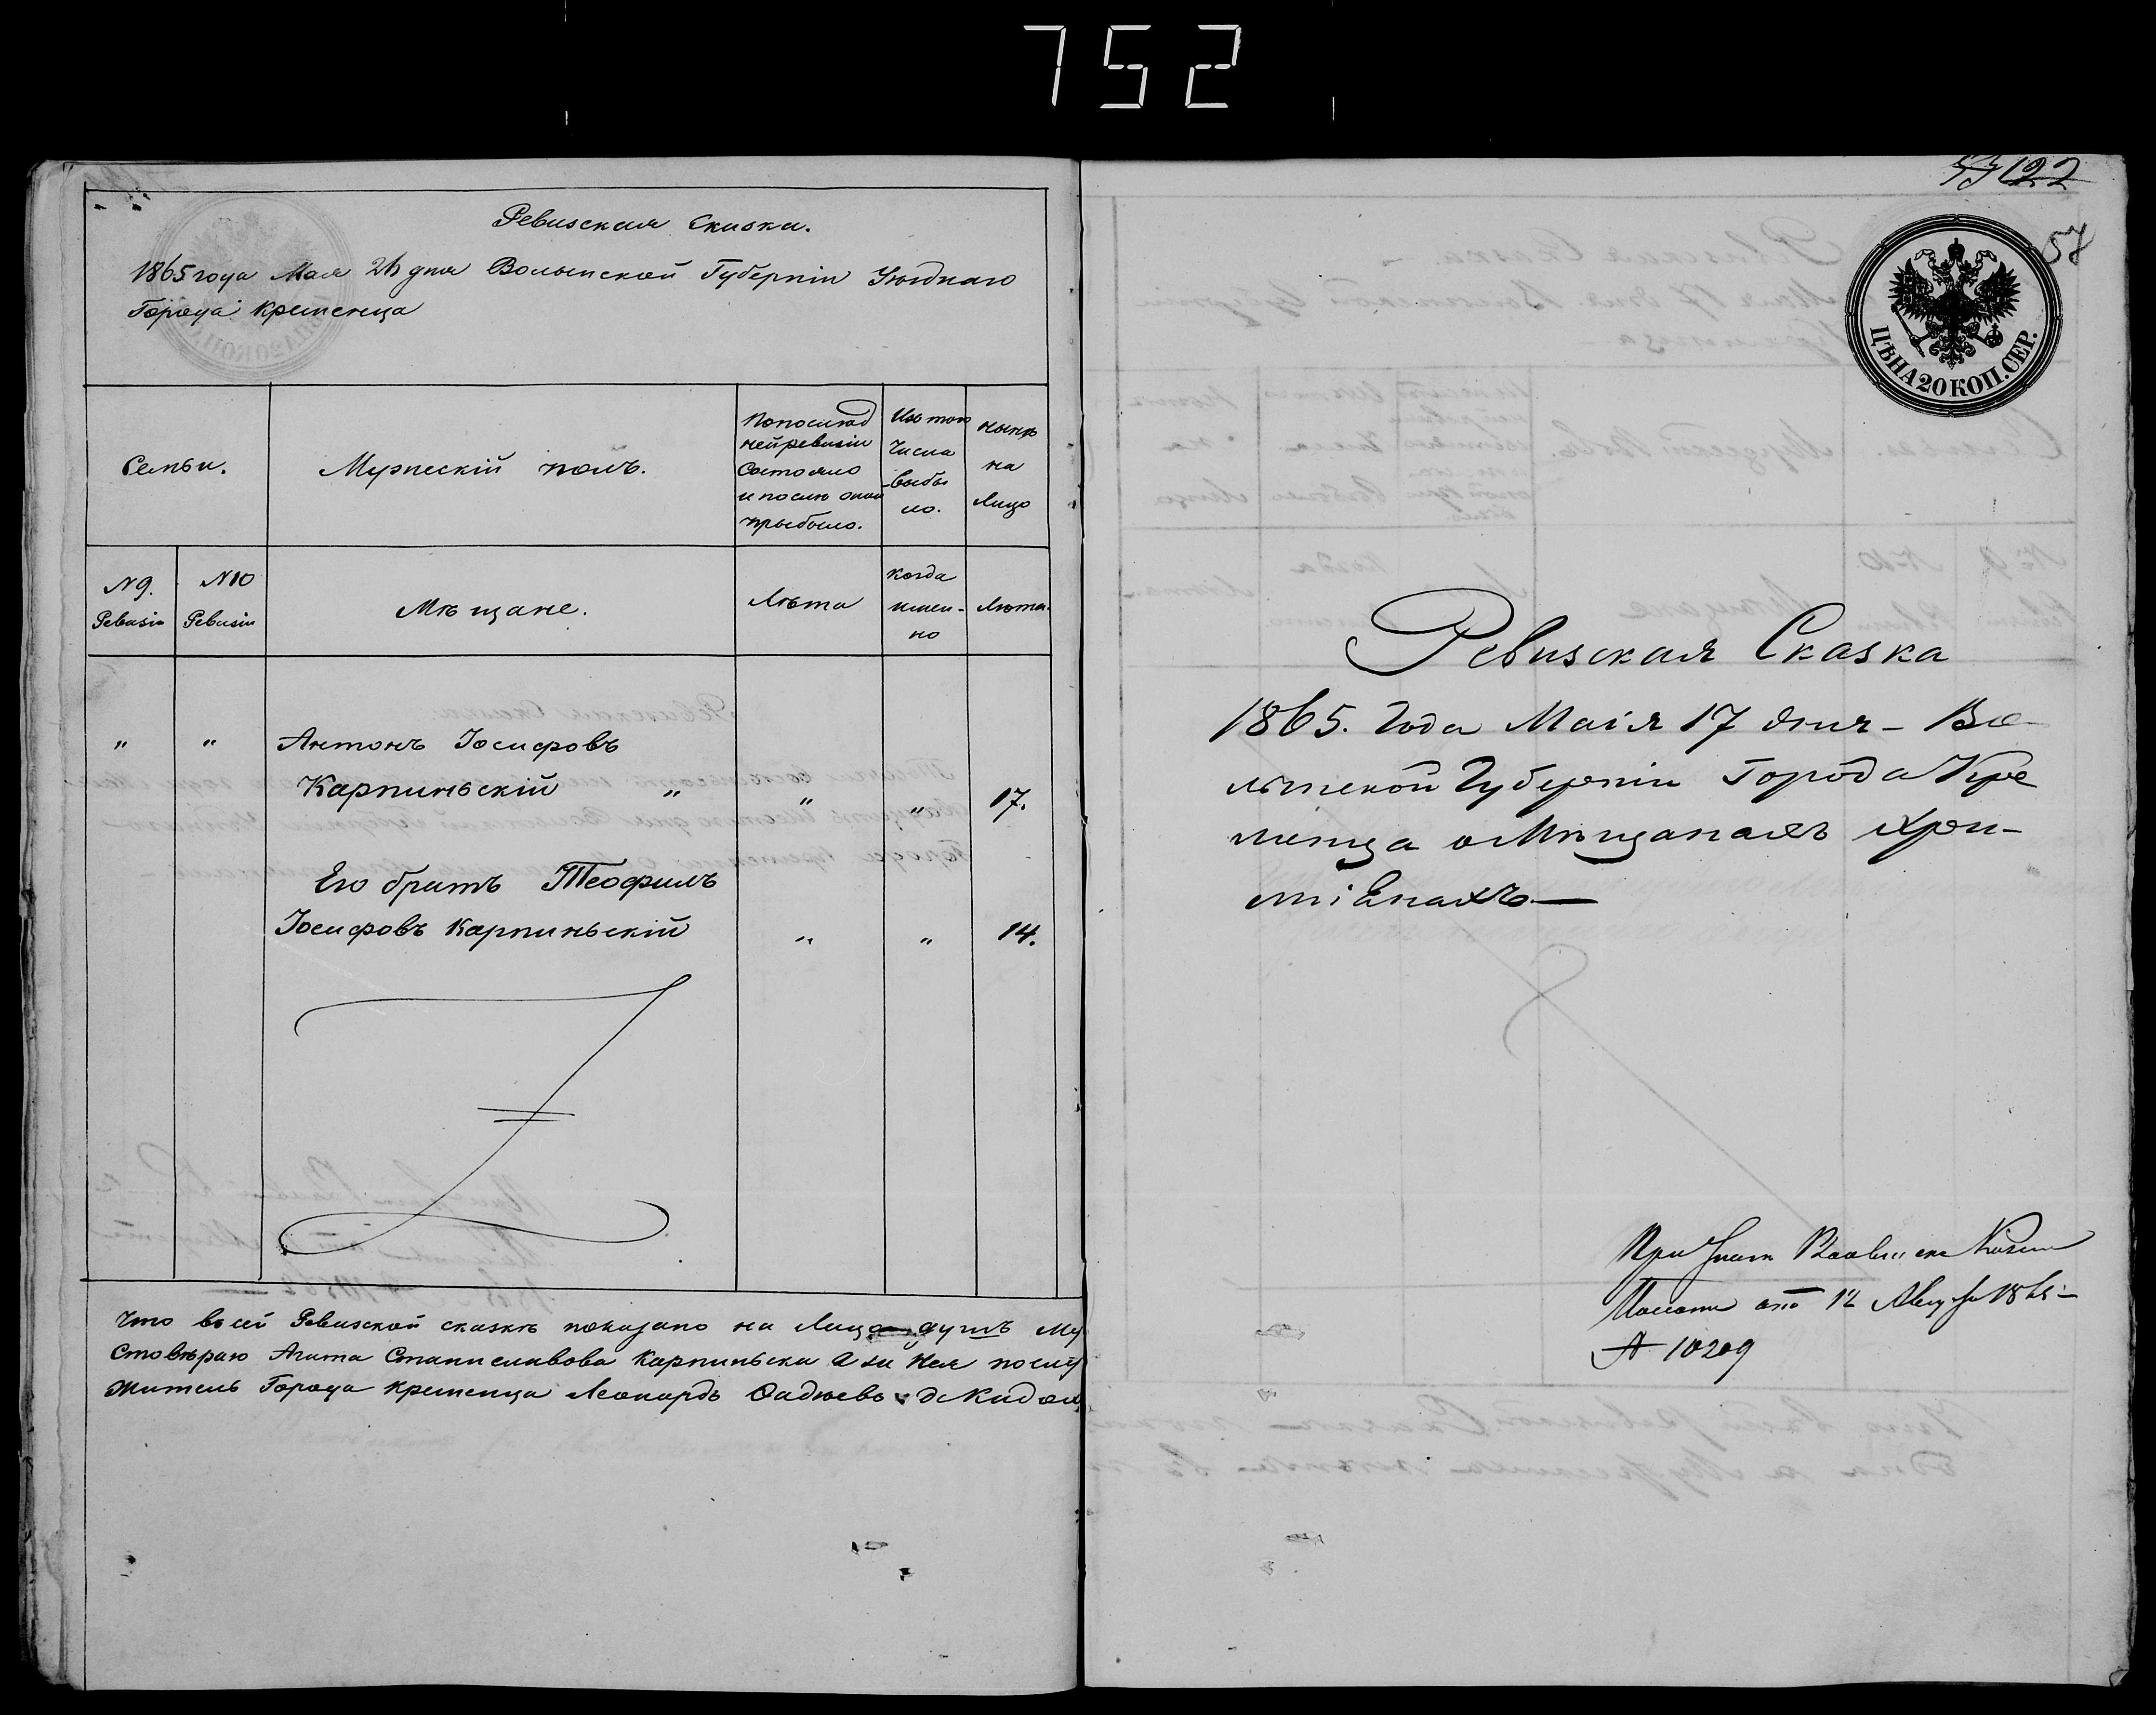 752
Ревизская Сказка.
1865 года Мая 26 дня Волынской Губерніи Уѣзднаго
Города Кременца
Семьи.
Мужескій полъ.
По послѣд
ней ревизіи
Состояло
и послѣ оной
прыбыло.
Изъ того
Числа
выбы
ло.
нынѣ
на
Лицо
№ 9.
Ревизіи
№ 10
Ревизіи
Мѣщане.
Лѣта
когда
имен-
но
Лѣта.
" " Антонъ Іосифовъ
Карпиньскій " " " 17.
Его братъ Теофилъ
Іосифовъ Карпиньскій " " 14.
Что въ сей Ревизской сказкѣ показано на Лицо душъ Му
Стовѣраю Агата Станиславова Карпиньска а за Нея
житель Города Кременца Леонардъ
122
57
ЦѢНА 20 КОП. СЕР.
Ревизская Сказка
1865. Года Маія 17 дня – Во
лынской Губерніи Города Кре
менца о Мѣщанахъ Хри-
стіянахъ —
При Указѣ Казен
Палаты отъ 12 Августа 1865 –
№ 10209